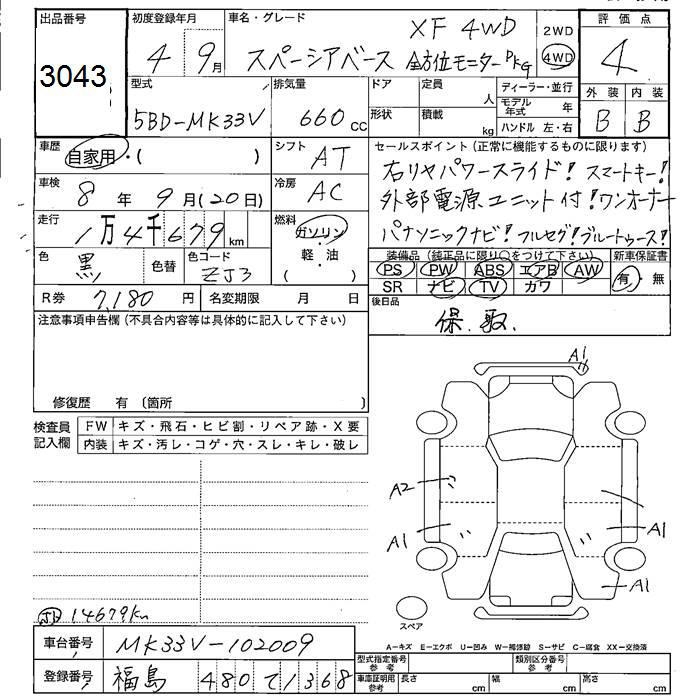 出品番号
3043
初度登録年月
4 9月
車名・グレード
XF 4WD
スペーシアベース 全方位モニターPkg
2WD
4WD
評価点
4
外装 内装
B B
型式
5BD-MK33V
排気量
660cc
ドア 定員
人
形状 積載
kg
ディーラー・並行
モデル年式 年
ハンドル 左・右
車歴
自家用・( )
シフト
AT
車検
8年9月(20日)
冷房
AC
走行
1万4千679km
燃料
ガソリン
軽・油
( )
色
黒
色替
色コード
ZJ3
R券
7,180円
名変期限 月 日
セールスポイント(正常に機能するものに限ります)
右リヤパワースライド! スマートキー!
外部電源ユニット付!ワンオーナー
パナソニックナビ! フルセグ!ブルートゥース!
装備品(純正品に限り○をつけて下さい)
PS PW ABS エアB AW
SR ナビ TV カワ
新車保証書
有・無
後日品
保.取.
注意事項申告欄(不具合内容等は具体的に記入して下さい)
修復歴 有 (箇所
検査員記入欄
FW キズ・飛石・ヒビ割・リペア跡・X要
内装 キズ・汚レ・コゲ・穴・スレ・キレ・破レ
A1
A2
A1
A1
A1
スペア
14679km
車台番号
MK33V-102009
登録番号
福島 480て1368
A-キズ E-エクボ U-凹み W-補修跡 S-サビ C-腐食 XX-交換済
型式指定番号参考
類別区分番号参考
車庫証明用参考
長さ cm 幅 cm 高さ cm